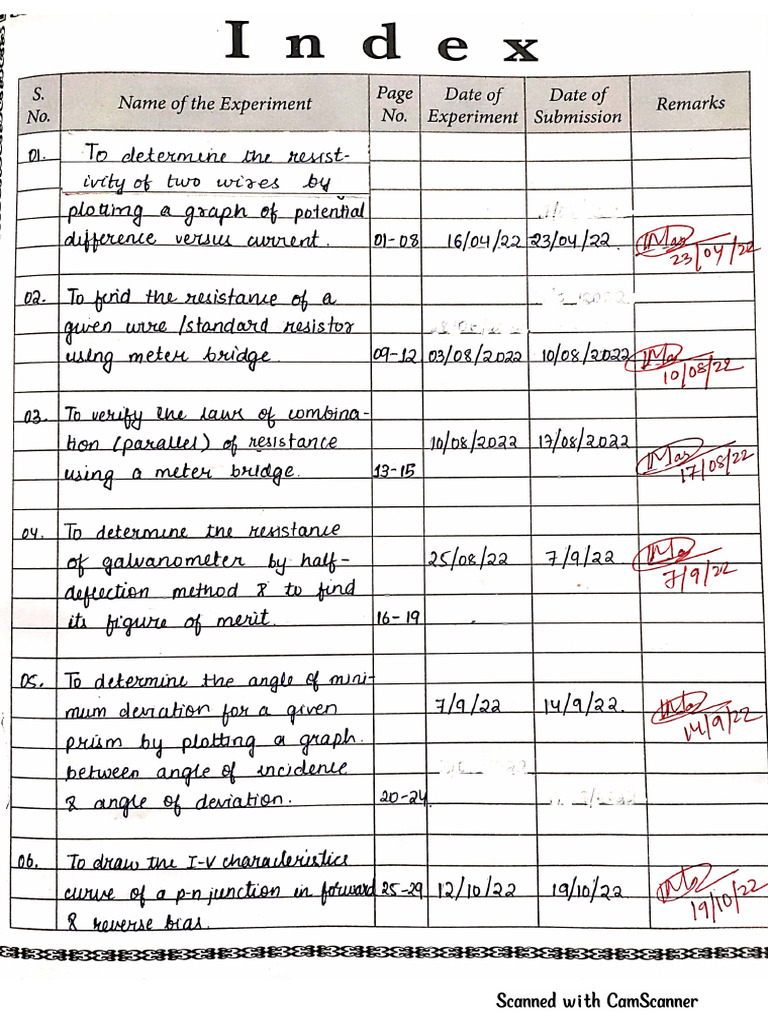 Index
S. No. Name of the Experiment Page No. Date of Experiment Date of Submission Remarks
01. To determine the resist-
ivity of two wires by
plotting a graph of potential
difference versus current. 01-08 16/04/22 23/04/22. 23/04/22
02. To find the resistance of a
given wire/standard resistor
using meter bridge. 09-12 03/08/2022 10/08/2022 10/08/22
03. To verify the laws of combina-
tion (parallel) of resistance 10/08/2022 17/08/2022
using a meter bridge. 13-15 17/08/22
04. To determine the resistance
of galvanometer by half- 25/08/22 7/9/22. 7/9/22
deflection method & to find
its figure of merit. 16-19
05. To determine the angle of mini-
mum deviation for a given 7/9/22 14/9/22. 14/9/22
prism by plotting a graph.
between angle of incidence
& angle of deviation. 20-24
06. To draw the I-V characteristics
curve of a p-n junction in forward 25-29 12/10/22 19/10/22 19/10/22
& reverse bias.
Scanned with CamScanner